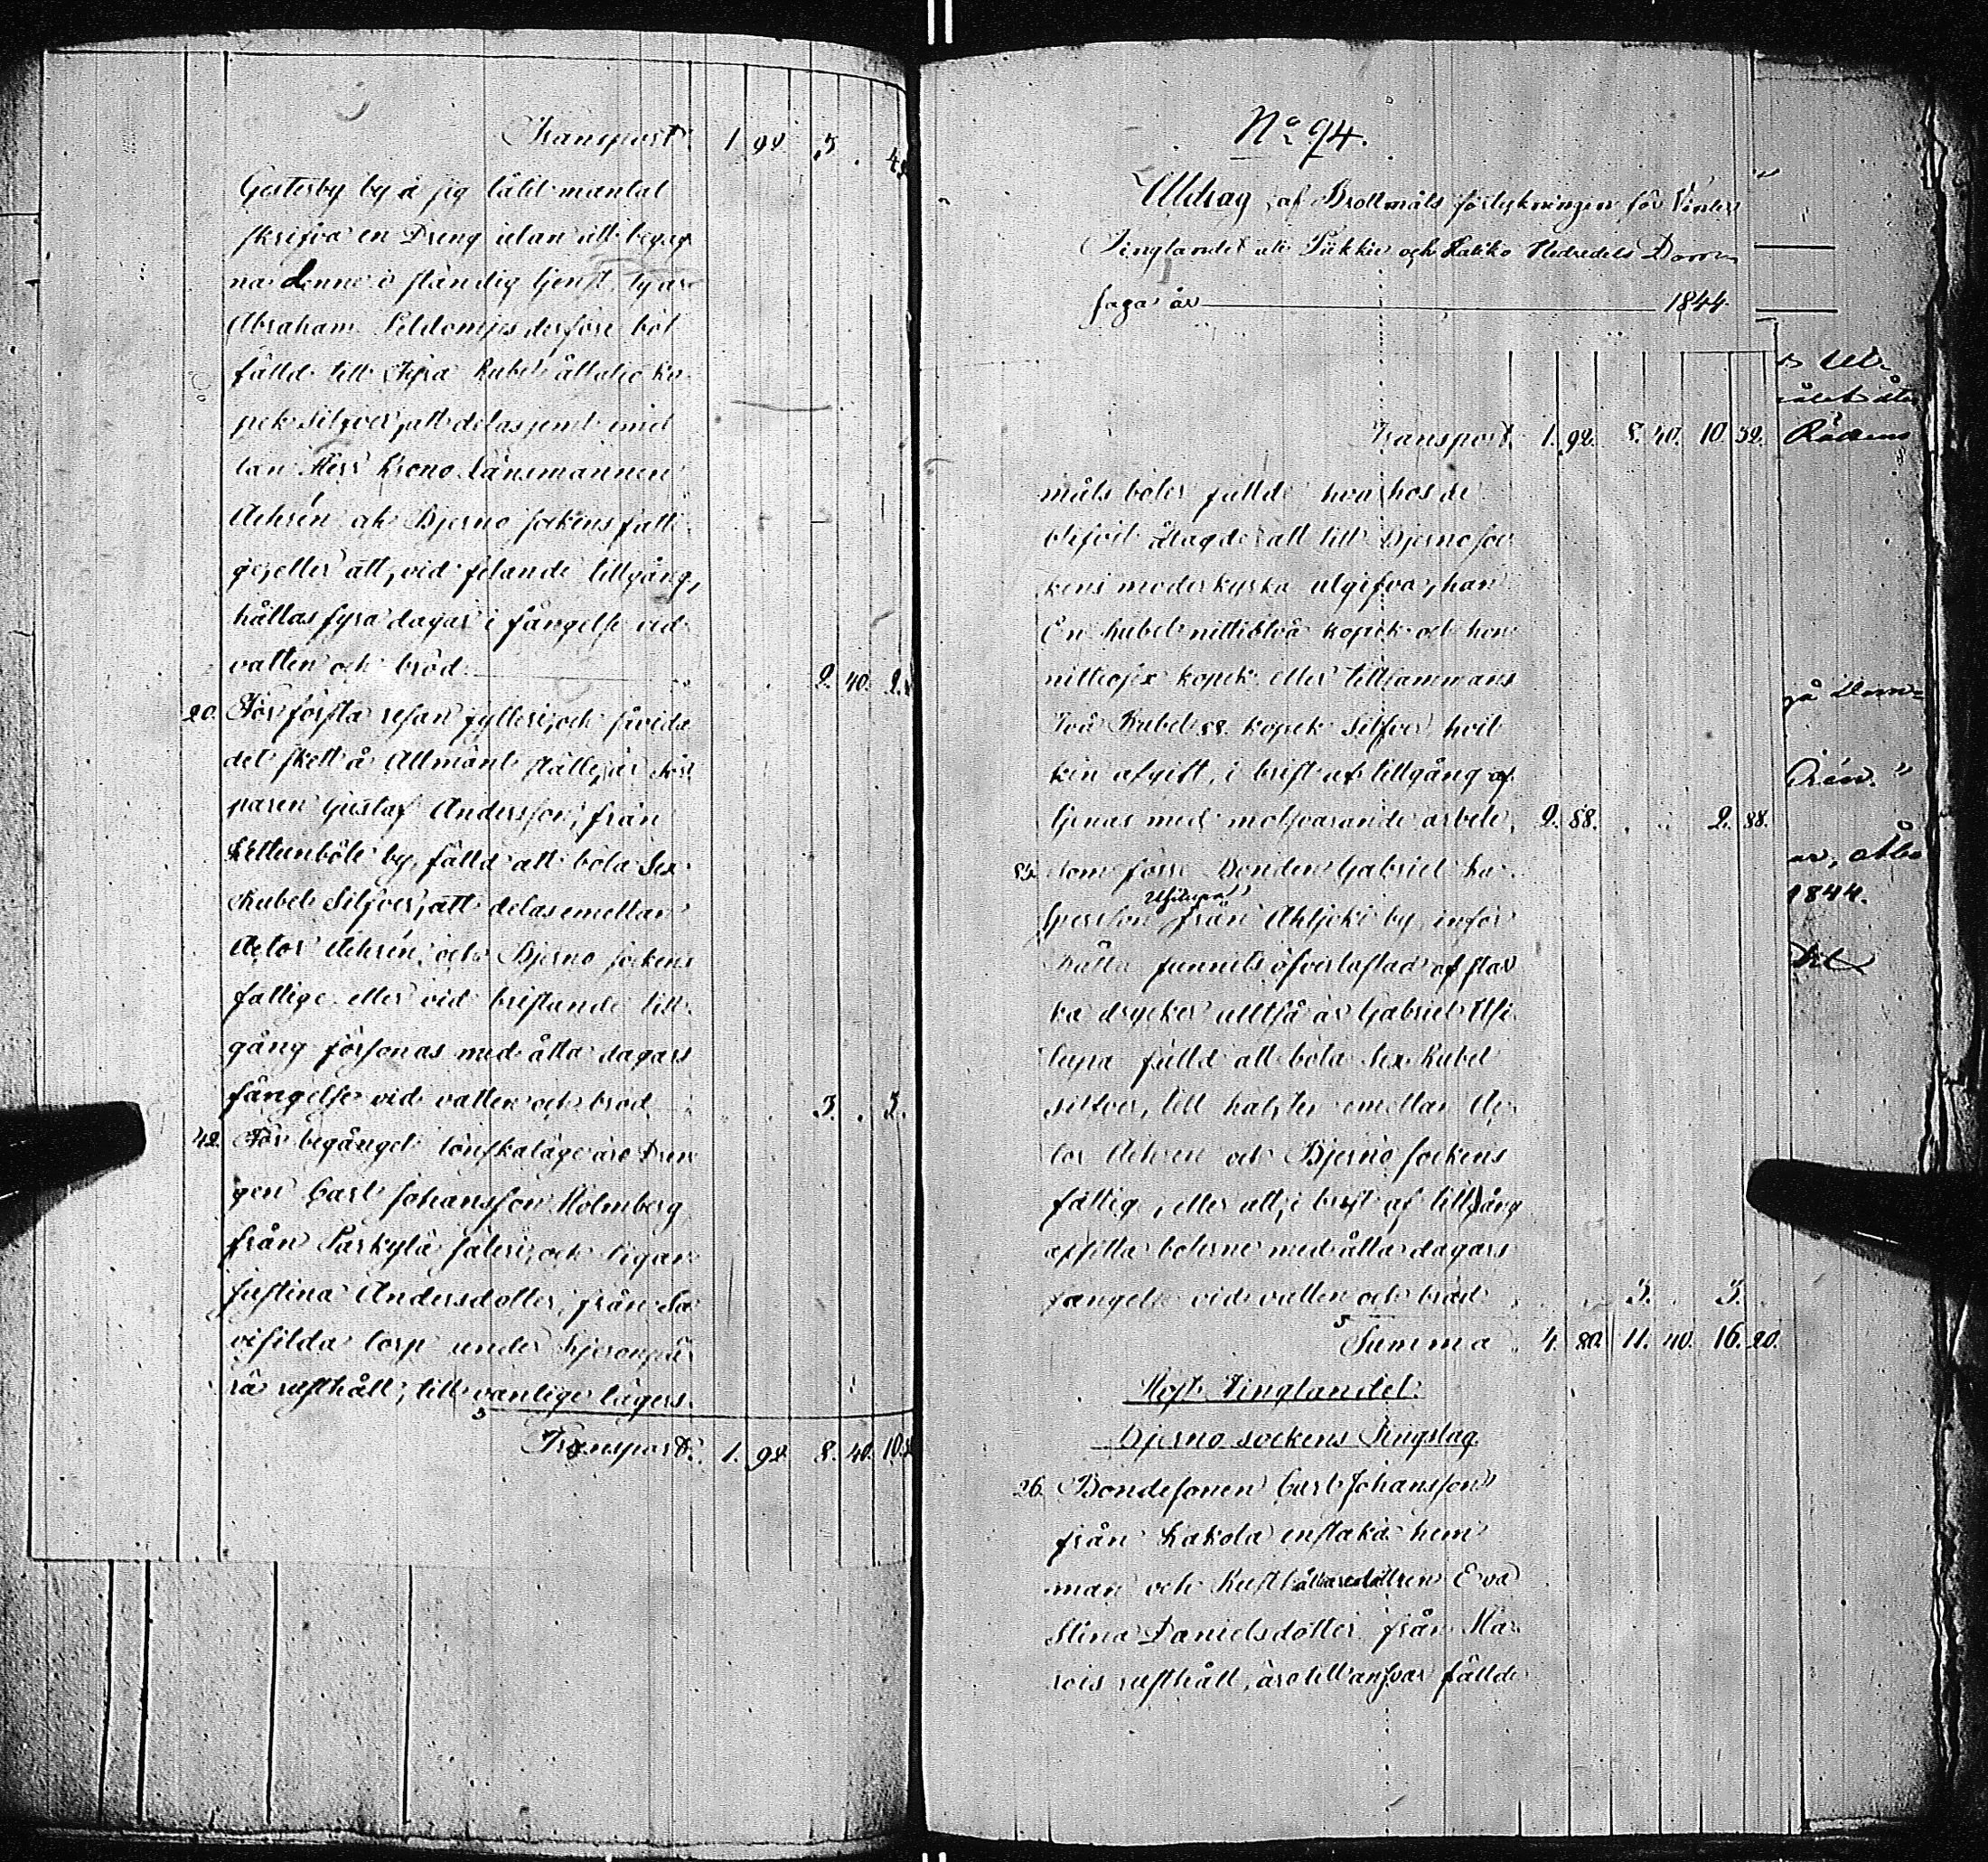 Transport. 1. 92. 3. . 4.92
Gesterby by å sig låtit mantal
skrifva en Dreng utan att begag
na denne i ständig tjenst, ty är
Abraham derföre böt
fälld till fyra Rubel åttatio ko
pek silfver, att delas jemt imel
lan Herr Krono Länsmannen
Aehrén och Bjerno sockens fatti
ge, eller att, vid felande tillgång,
hållas fyra dagar i fängelse vid
vatten och bröd. 2. 40. 2.
20. För första resan fylleri, och såvida
det skett å Allmänt ställe, är Tor
paren Gustaf Andersson, från
Kettunböle by, fälld att böta Sex
Rubel Silfver, att delas emellan
Actor Aehrén och Bjerno sockens
fattige eller vid bristande till
gång försonas med åtta dagars
fängelse vid vatten och bröd 3. . 3.
42. För begånget lönskaläge äro Dren
gen Carl Johansson Holmberg
från Särkylä säteri, och Pigan
Justina Andersdotter, från Sa
visilda torp under
rä rusthåll, till vanlige lägers
Transport. 1. 92 8. 40. 10.
No 94.
Utdrag af Brottmåls förteckningen för Vinter
Tinglandet uti Pikkie och Halikko Häradets Dom
saga år 1844
Transport. 1. 92. 8. 40. 10. 32.
måls böter fällde hvarhos de
blifvit ålagde att till Bjerno soc
kens moderkyrka utgifva, han
En Rubel nittiotvå kopek och hon
nittiosex kopek eller tillsammans
Två Rubel 88. kopek silfver hvil
ken afgift, i brist af tillgång af
tjenas med motsvarande arbete, 2. 88. . . 2. 88.
Som förre Bonden Gabriel Ka
Ylisilupa
spersson från Ahljoki by, inför
Rätta funnits öfverlastad af star
ka drycker alltså är Gabriel
lupa fälld att böta Sex Rubel
silfver, till hälften emellan Ac
tor Aehrén och Bjernö sockens
fattig, eller att, i brist af tillgång
afsitta böterne med åtta dagars
fängelse vid vatten och bröd 3. . 3.
Summa 4. 80. 11. 40. 16. 20.
Höst Tinglandet.
Bjerno sockens Tingslag.
26. Bondesonen Carl Johansson
från Kakola enstaka hem
man och Rusthållaredottren Eva
Stina Daniels dotter från Ma
rois rusthåll, äro till ansvar fällde
Ut-
Rättens
på Dom-
1844.